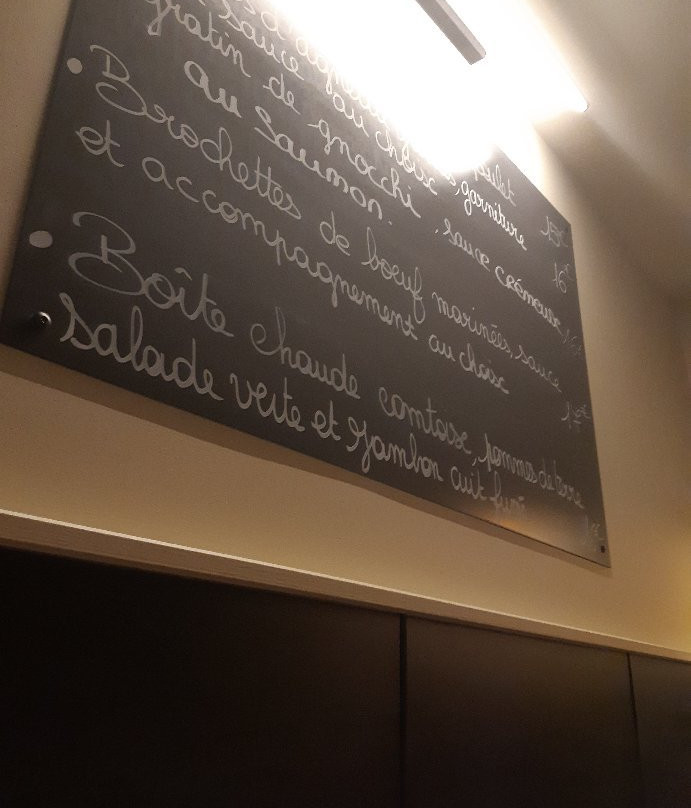 sauce au choix, garniture
gratin de gnocchi, sauce crémeuse
au saumon.
Brochettes de boeuf marinées, sauce
et accompagnement au choix
Boîte chaude comtoise, pommes de terre
salade verte et jambon cuit fumé